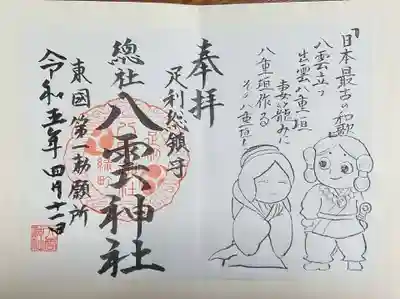 『日本最古の和歌』
八雲立つ
出雲八重垣
妻籠みに
八重垣作る
その八重垣を
奉拝
足利総鎮守
總社八雲神社
東國第一勅願所
令和五年四月十二日